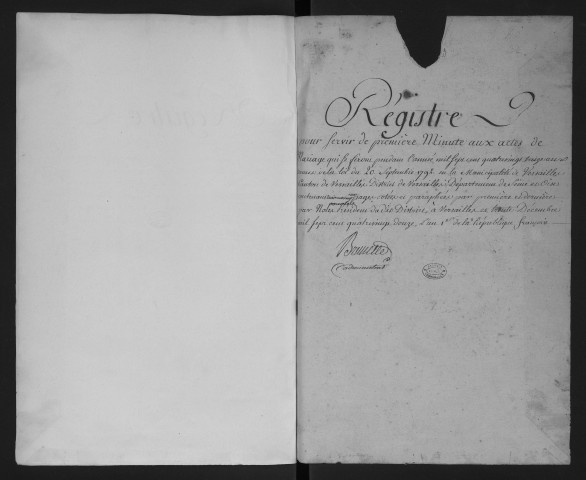 Régistre
pour servir de première Minute aux actes de
Mariage qui se feront pendant l'année mil sept cent quatrevingt treize
loi du 20 Septembre 1792 en la Municipalité de Versailles
Canton de Versailles District de Versailles Département de Seine et Oise
pages cotées et paraphées par première et dernière
par Nous du dit District, à Versailles ce trente Décembre
mil sept cent quatrevingt douze, l'an 1er de la République française